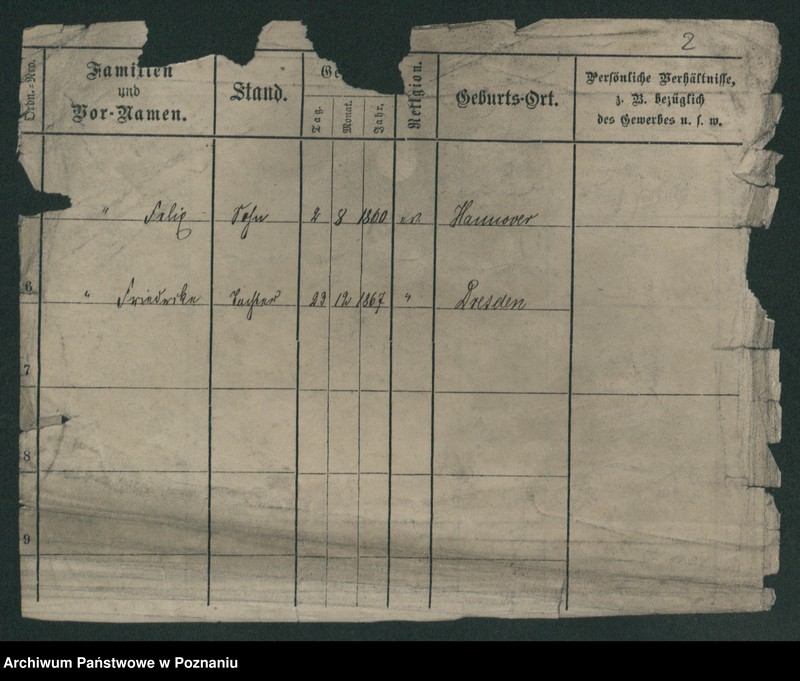 2
Ordn.-Nro.
Familien
und
Vor-Namen.
Stand.
Ge
Tag.
Monat.
Jahr.
Religion.
Geburts-Ort.
Persönliche Verhältnisse,
z. B. bezüglich
des Gewerbes u. s. w.
" Felix Sohn 2 8 1860 Hannover
6 " Friedrike Tochter 23 12 1867 " Dresden
7
8
9
Archiwum Państwowe w Poznaniu